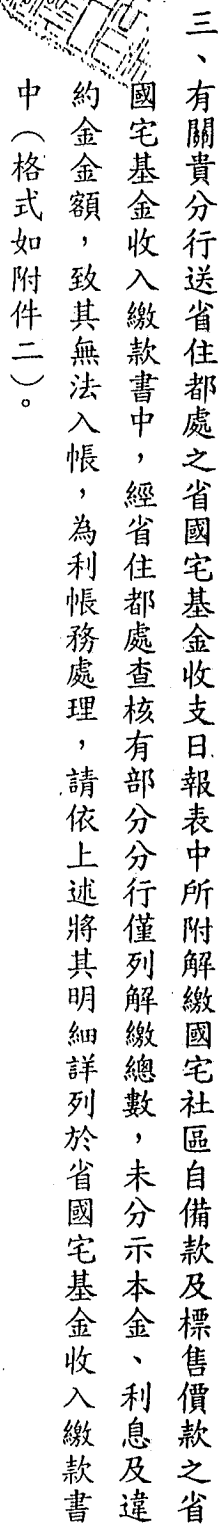 三、有關貴分行送省住都處之省國宅基金收支日報表中所附解繳國宅社區自備款及標售價款之省
國宅基金收入繳款書中，經省住都處查核有部分分行僅列解繳總數，未分示本金、利息及違
約金金額，致其無法入帳，為利帳務處理，請依上述將其明細詳列於省國宅基金收入繳款書
中（格式如附件二）。